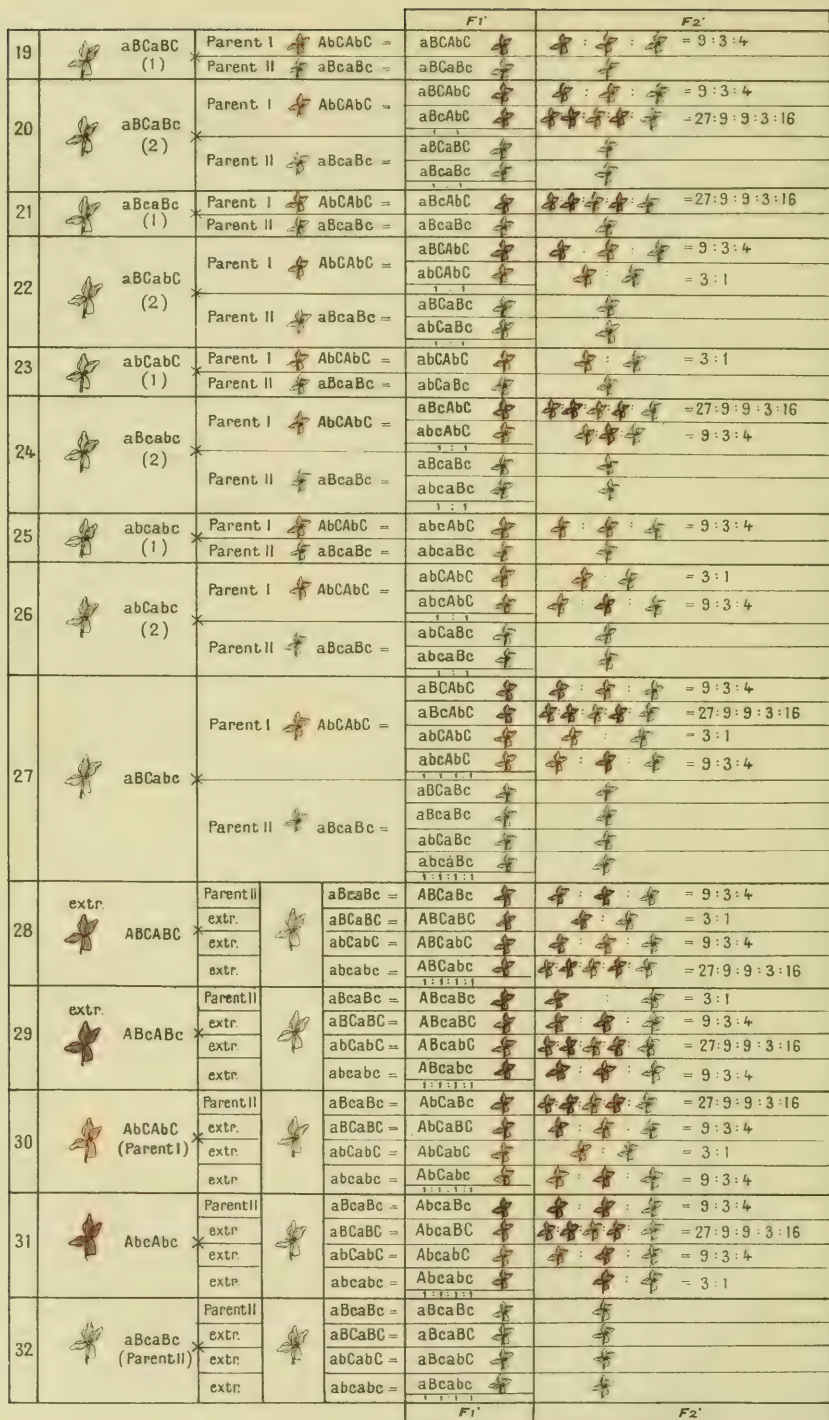 F1' F2'
19 aBCaBC (1) Parent I AbCAbC = aBCAbC = 9:3:4
Parent II aBcaBc = aBCaBc
20 aBCaBc (2) Parent I AbCAbC = aBCAbC = 9:3:4
aBcAbC =27:9:9:3:16
1:1
Parent II aBcaBc = aBCaBC
aBcaBc
1:1
21 aBcaBc (1) Parent I AbCAbC = aBcAbC =27:9:9:3:16
Parent II aBcaBc = aBcaBc
22 aBCabC (2) Parent I AbCAbC = aBCAbC = 9:3:4
abCAbC = 3:1
1:1
Parent II aBcaBc = aBCaBc
abCaBc
1:1
23 abCabC (1) Parent I AbCAbC = abCAbC = 3:1
Parent II aBcaBc = abCaBc
24 aBcabc (2) Parent I AbCAbC = aBcAbC =27:9:9:3:16
abcAbC = 9:3:4
1:1
Parent II aBcaBc = aBcaBc
abcaBc
1:1
25 abcabc (1) Parent I AbCAbC = abcAbC = 9:3:4
Parent II aBcaBc = abcaBc
26 abCabc (2) Parent I AbCAbC = abCAbC = 3:1
abcAbC = 9:3:4
1:1
Parent II aBcaBc = abCaBc
abcaBc
1:1
27 aBCabc Parent I AbCAbC = aBCAbC = 9:3:4
aBcAbC =27:9:9:3:16
abCAbC = 3:1
abcAbC = 9:3:4
1:1:1:1
Parent II aBcaBc = aBCaBc
aBcaBc
abCaBc
abcaBc
1:1:1:1
28 extr. ABCABC Parent II aBcaBc = ABCaBc = 9:3:4
extr. aBCaBC = ABCaBC = 3:1
extr. abCabC = ABCabC = 9:3:4
extr. abcabc = ABCabc =27:9:9:3:16
1:1:1:1
29 extr. ABcABc Parent II aBcaBc = ABcaBc = 3:1
extr. aBCaBC = ABcaBC = 9:3:4
extr. abCabC = ABcabC = 27:9:9:3:16
extr. abcabc = ABcabc = 9:3:4
1:1:1:1
30 AbCAbC (Parent I) Parent II aBcaBc = AbCaBc = 27:9:9:3:16
extr. aBCaBC = AbCaBC = 9:3:4
extr. abCabC = AbCabC = 3:1
extr. abcabc = AbCabc = 9:3:4
1:1:1:1
31 AbcAbc Parent II aBcaBc = AbcaBc = 9:3:4
extr. aBCaBC = AbcaBC =27:9:9:3:16
extr. abCabC = AbcabC = 9:3:4
extr. abcabc = Abcabc = 3:1
1:1:1:1
32 aBcaBc (Parent II) Parent II aBcaBc = aBcaBc
extr. aBCaBC = aBcaBC
extr. abCabC = aBcabC
extr. abcabc = aBcabc
1:1:1:1
F1' F2'